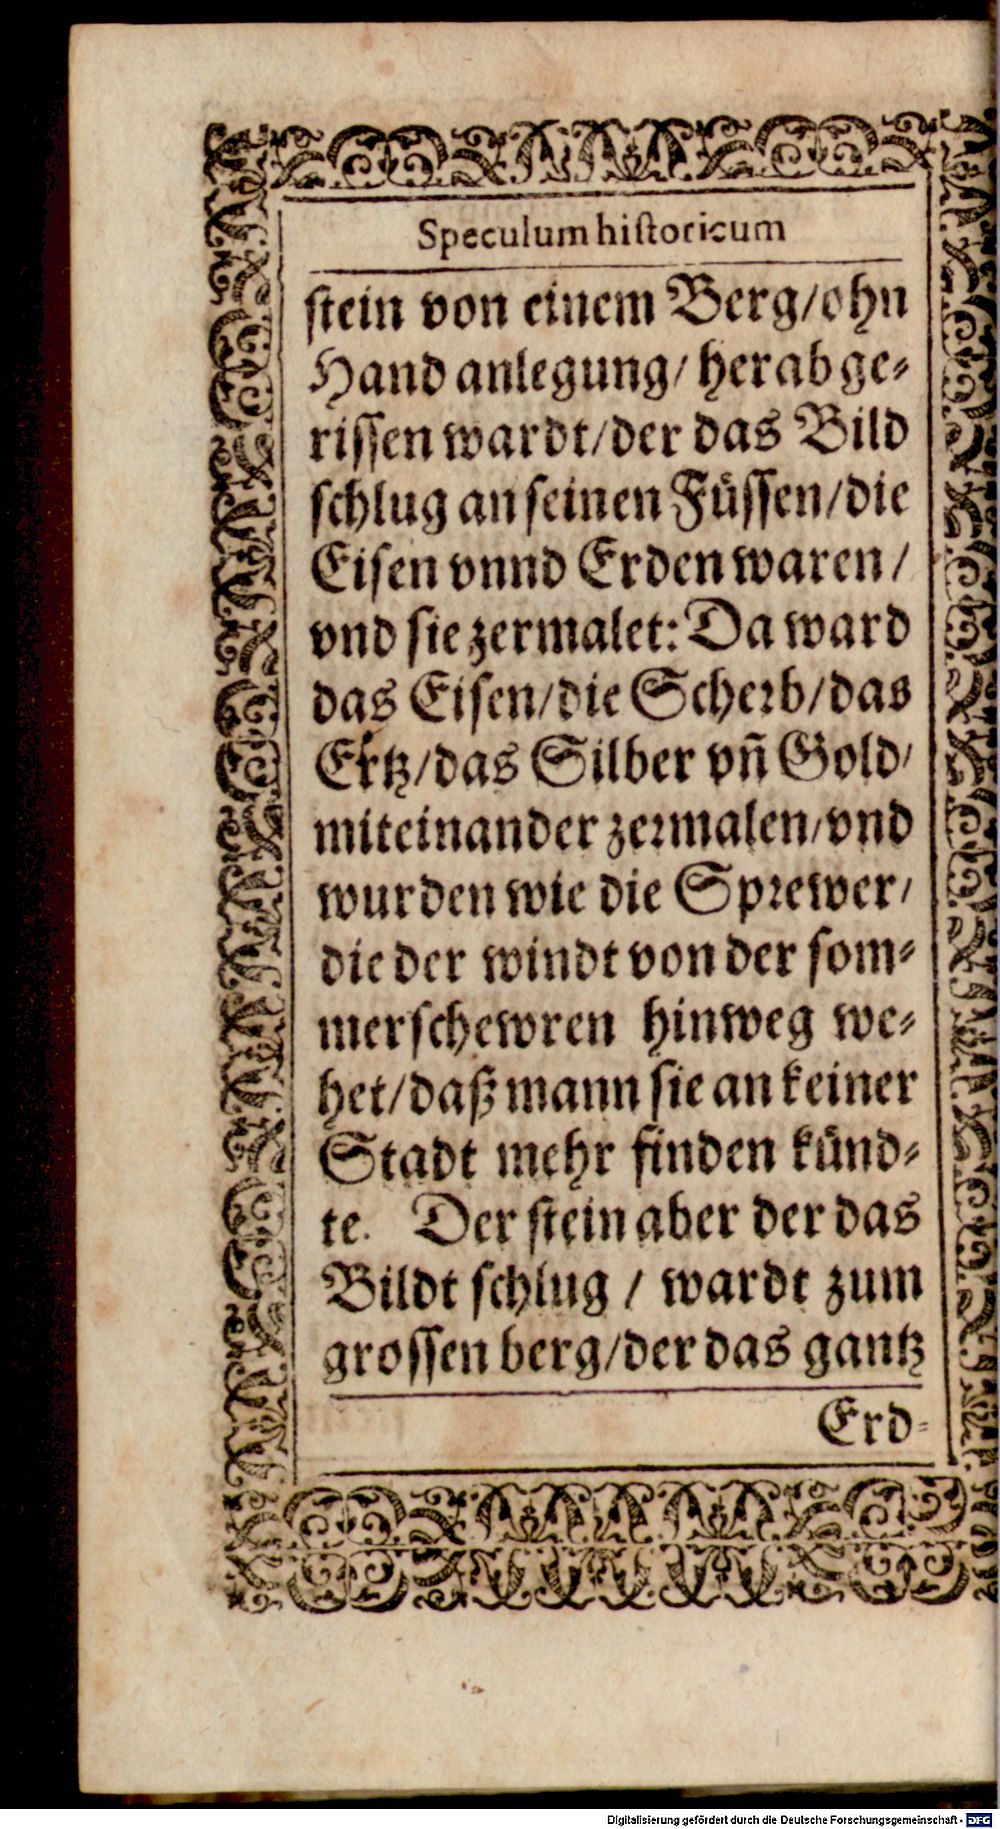 Speculum historicum
stein von einem Berg/ohn
Hand anlegung/ herab ge-
rissen wardt/der das Bild
schlug an seinen Füssen/die
Eisen vnnd Erden waren/
vnd sie zermalet: Da ward
das Eisen/die Scherb/das
Ertz/das Silber vñ Gold/
miteinander zermalen/vnd
wurden wie die Sprewer/
die der windt von der som-
merschewren hinweg we-
het/daß mann sie an keiner
Stadt mehr finden künd-
te. Der stein aber der das
Bildt schlug / wardt zum
grossen berg/der das gantz
Erd-
Digitalisierung gefördert durch die Deutsche Forschungsgemeinschaft - DFG